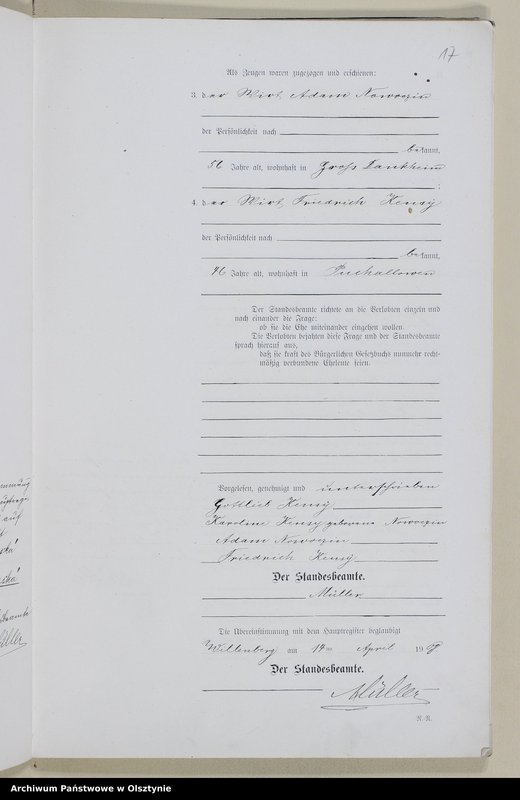 17
Als Zeugen waren zugezogen und erschienen:
3. der Wirt Adam Nowoczin
der Persönlichkeit nach
bekannt,
56 Jahre alt, wohnhaft in Groß Dankheim
;
4. der Wirt Friedrich Kensy
der Persönlichkeit nach
bekannt,
46 Jahre alt, wohnhaft in Puchallowen
Der Standesbeamte richtete an die Verlobten einzeln und
nach einander die Frage:
ob sie die Ehe miteinander eingehen wollen.
Die Verlobten bejahten diese Frage und der Standesbeamte
sprach hierauf aus,
daß sie kraft des Bürgerlichen Gesetzbuchs nunmehr recht-
mäßig verbundene Eheleute seien.
Vorgelesen, genehmigt und unterschrieben
Gottlieb Kensy
Karoline Kensy geborene Nowoczin
Adam Nowoczin
Friedrich Kensy
Der Standesbeamte.
Müller
Die Übereinstimmung mit dem Hauptregister beglaubigt
Willenberg am 14ten April 190
Der Standesbeamte.
Müller
N.-R.
Archiwum Państwowe w Olsztynie